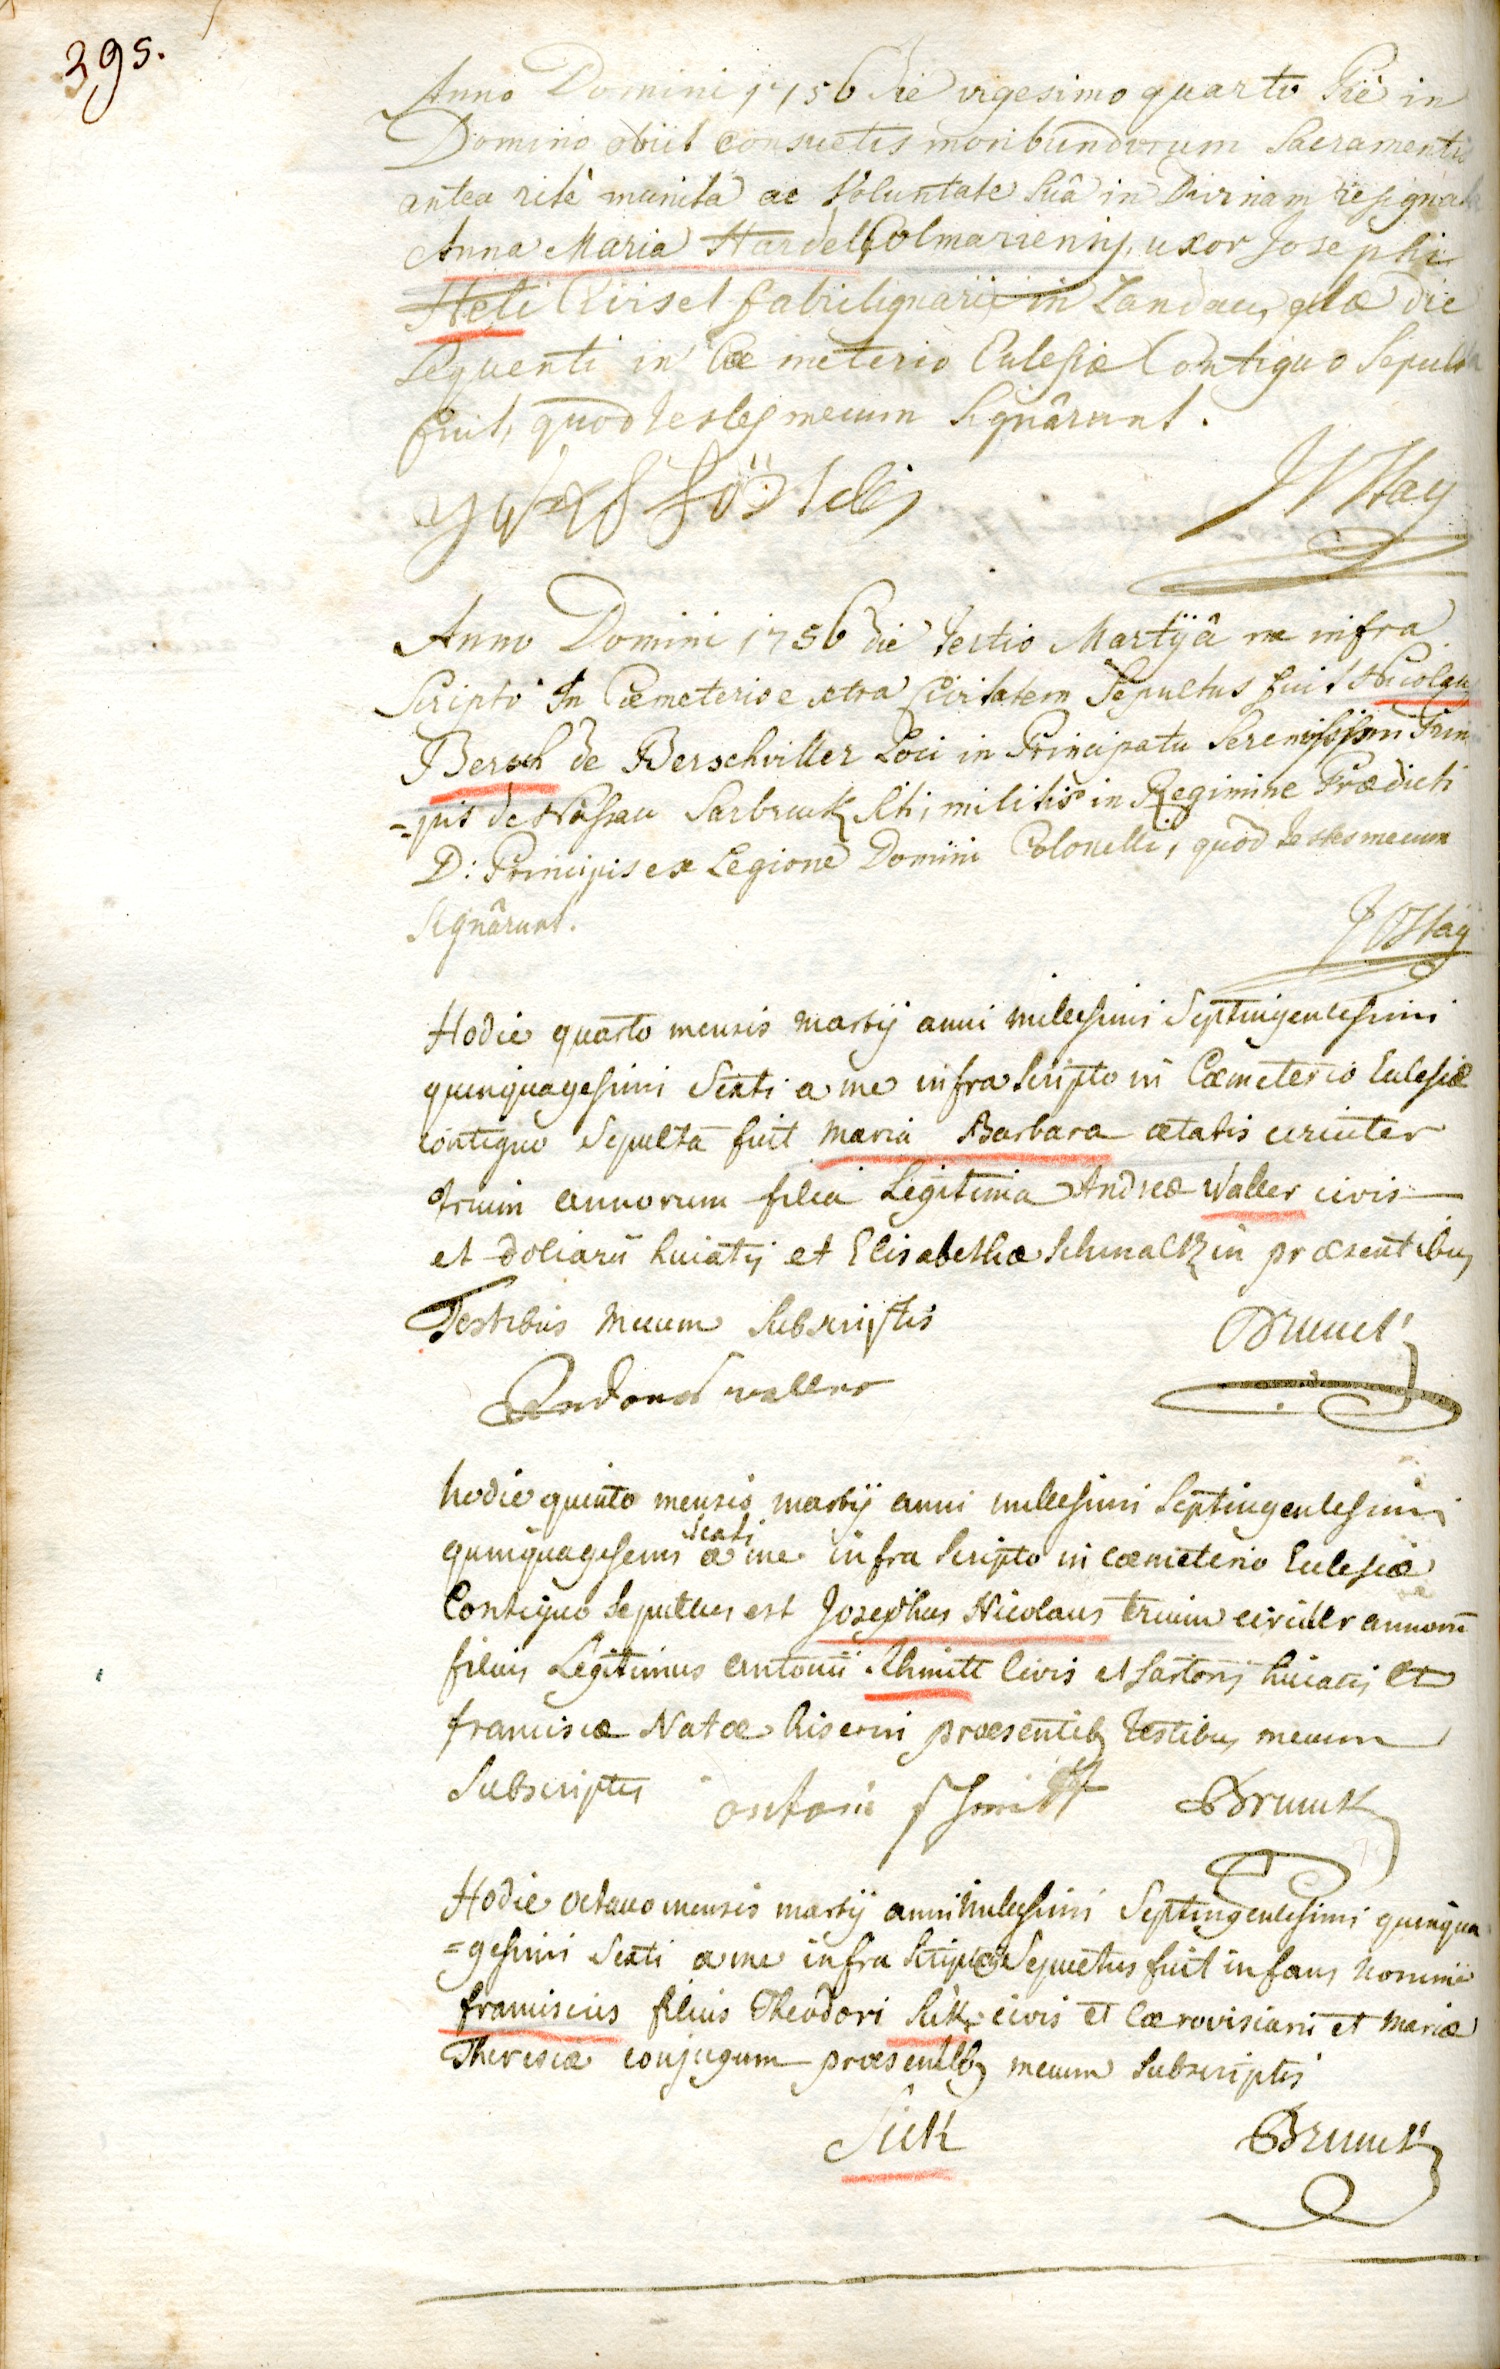 395.
Anno Domini 1756 die vigesimo quarto Piè in
Domino obiit consuetis moribundorum Sacramentis
antea ritè munita ac Voluntate Suâ in Divinam resignata
Anna Maria Hardel Colmariensis, uxor Josephi
Heli Civis et fabri lignarii in Landau, quæ die
Sequenti in Cœmeterio Eclesiæ Contiguo Sepulta
fuit, quod testes mecum Signârunt.
JVHay
Anno Domini 1756 die tertio Martij â me infra
Scripto In Cœmeterio extra Civitatem Sepultus fuit Nicolaus
Bersch de Berschviller Loci in Principatu Serenissimi Prin
=pis de Nassau Sarbruck Siti, militis in Regimine Prædicti
D: Principis ex Legione Domini Colonelli, quod testes mecum
Signârunt.
JVHay
Hodie quarto mensis martij anni millesimi Septingentesimi
quinquagesimi Sexti a me infra Scripto in Cœmeterio Eclesiæ
contiguo Sepulta fuit Maria Barbara ætatis circiter
trium annorum filia Legitima Andreæ Waller civis
et doliarii huiatis et Elisabethæ Schmaltzin præsentibus
Testibus mecum Subscriptis
Brunck
wallero
hodie quinto mensis martij anni millesimi Septingentesimi
quinquagesimi Sexti a me infra Scripto in cœmeterio Eclesiæ
Contiguo Sepultus est Josephus Nicolaus trium circiter annorū
filius Legitimus Antonii Schmitt Civis et Sartoris huiatis et
franciscæ Natæ Riserin præsentib9 testibus mecum
Subscriptis
antoni schmitt
Brunck
Hodie octavo mensis martij anni millesimi Septingentesimi quinqua
=gesimi Sexti a me infra Scripto Sepultus fuit infans Nomine
franciscus filius Theodori Sick civis et cærovisiarii et Mariæ
Theresiæ conjugum præsentib9 mecum Subscriptis
Sick
Brunck